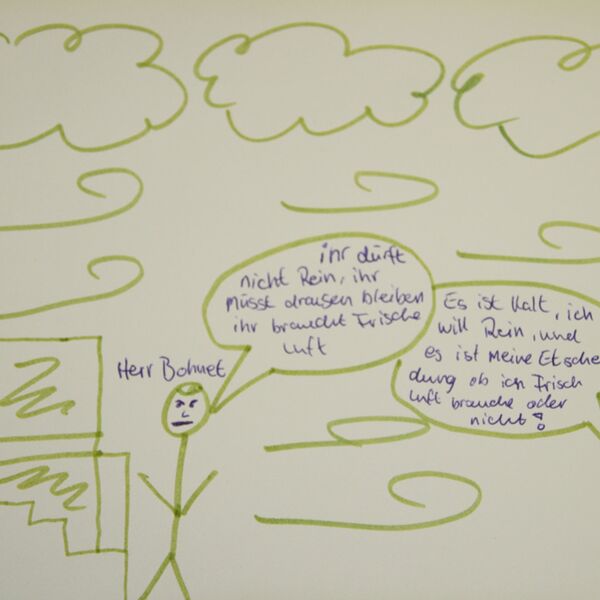 ihr dürft
nicht Rein, ihr
müsst drausen bleiben
ihr braucht Frische
Luft
Herr Bohnet
Es ist Kalt, ich
will Rein, und
es ist meine Etschei
dung ob ich Frisch
Luft brauche oder
nicht!